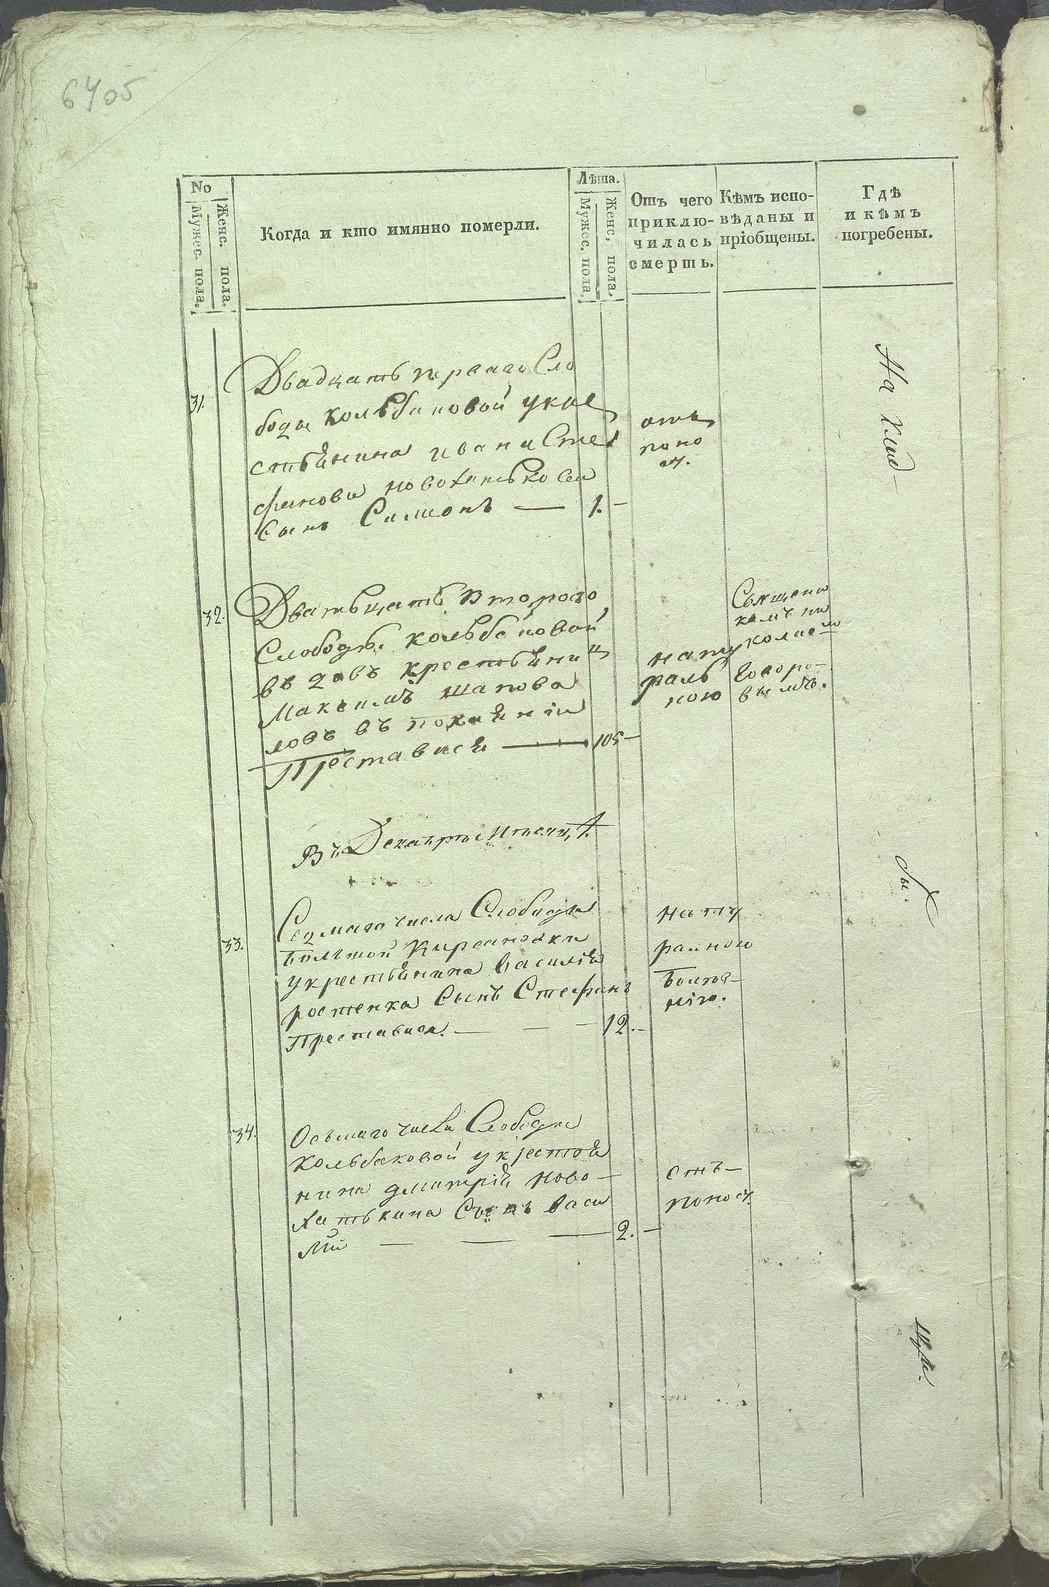 6405
No
Мужес. пола.
Женс. пола.
Когда и кто имянно померли.
Лѣта.
Мужес. пола.
Женс. пола.
Отъ чего
приклю-
чилась
смерть.
Кѣмъ испо-
вѣданы и
пріобщены.
Гдѣ
и кѣмъ
погребены.
31.
Двадцать перваго Сло
боды Кольбаковой укре
стьянина Ивана Сте
фанова
сынъ Симеонъ — 1. –
отъ
поно
са.
На клад
32.
Дватьцать втораго
Слободы Кольбаковой
вдовъ крестьянинъ
Максимъ Шапова
ловъ въ покаяніи
Преставися — 105 –
нату
раль
ною
Священи
комъ Ни
колаемъ
вымъ.
Въ Декабрѣ Мѣсяцѣ
33.
Седмаго числа Слободы
Большой Кирсановки
укрестьянина Василія
ростенка Сынъ Стефанъ
Преставися. — – – 12. –
нату
ралною
болѣз–
нію.
бы.
34.
Осьмаго числа Слободы
Кольбаковой укрестья
нина Дмитрій Ново–
хатькина Сынъ Васи
лій — — — 2. –
отъ–
поносу